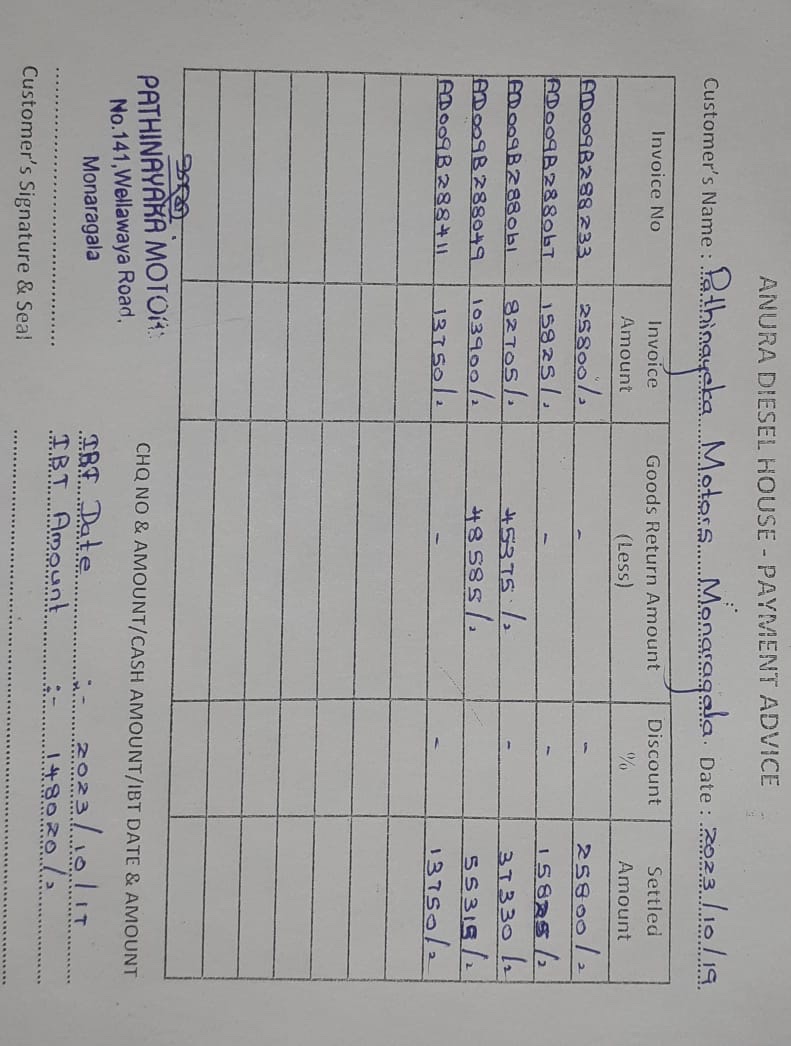 ANURA DIESEL HOUSE - PAYMENT ADVICE
Customer's Name : Pathinayaka Motors Monaragala. Date : 2023/10/19
Invoice No Invoice Amount Goods Return Amount (Less) Discount % Settled Amount
AD009B288233 25800/. - - 25800/.
AD009B288067 15825/. - - 15825/.
AD009B288061 82705/. 45375/. - 37330/.
AD009B288049 103900/. 48585/. 55315/.
AD009B288411 13750/. - - 13750/.
PATHINAYAKA MOTORS
No.141, Wellawaya Road,
Monaragala
Customer's Signature & Seal
CHQ NO & AMOUNT/CASH AMOUNT/IBT DATE & AMOUNT
IBT Date :- 2023/10/17
IBT Amount :- 148020/.